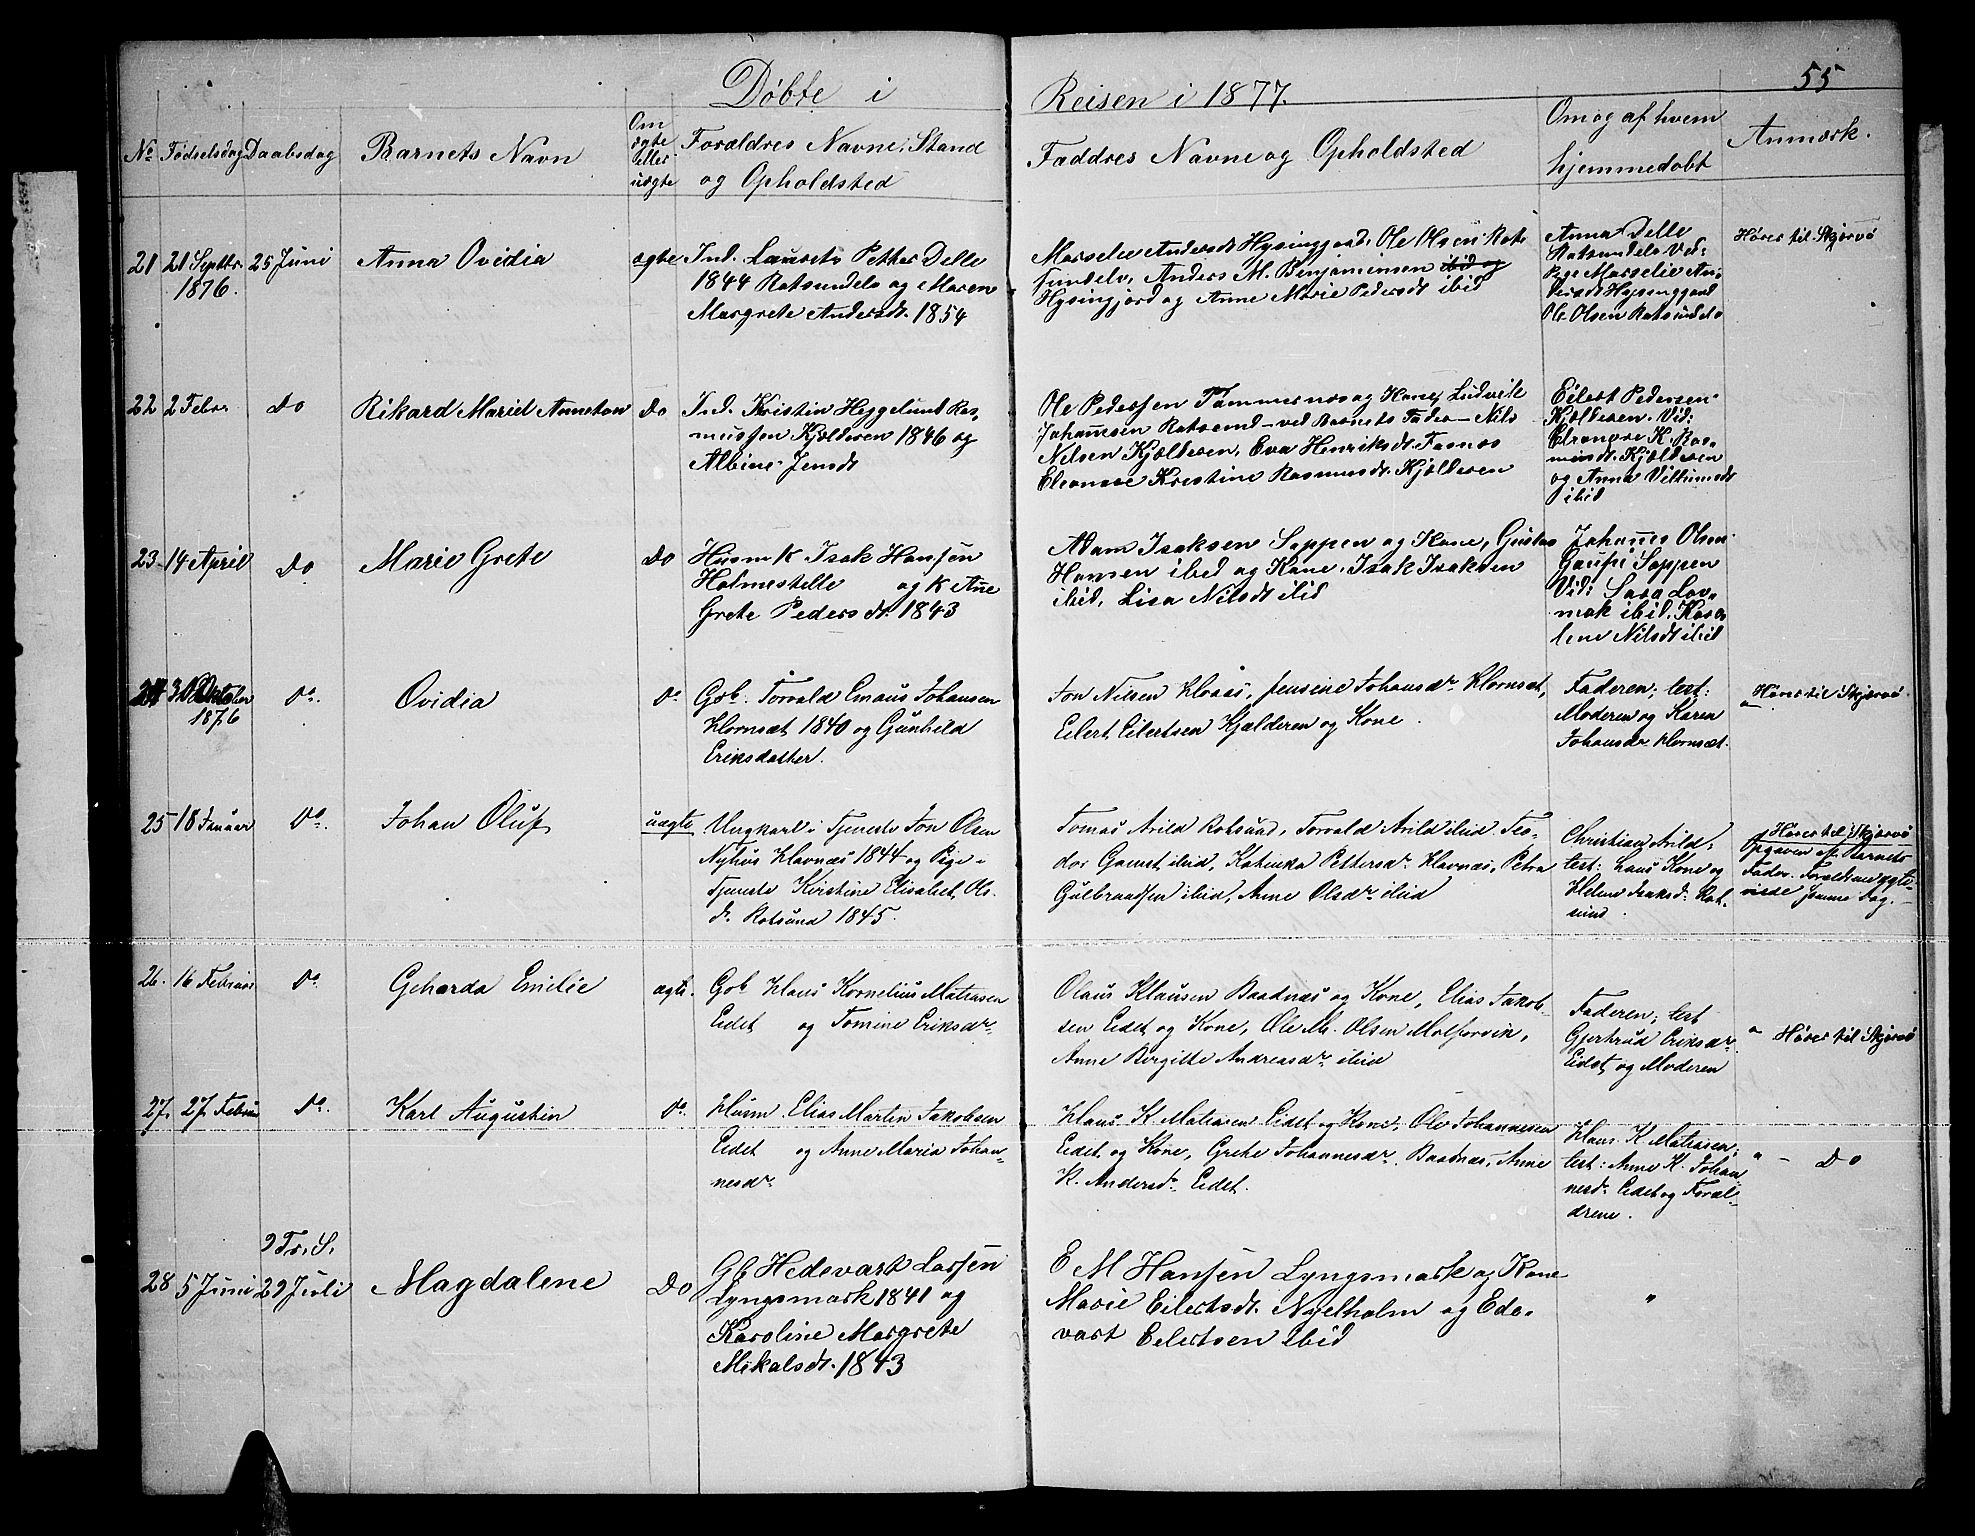 55
Døbte i Reisen i 1877.
No Fødselsdag Daabsdag Barnets Navn Om ægte eller uægte Forældres Navne, Stand og Opholdsted Faddres Navne og Opholdsted Om og af hvem hjemmedøbt Anmærk.
21 21 Septbr. 1876. 25 Juni Anna Ovidia ægte
Ind. Laurits Petter Delle
1844 Rotsundelv og Maren
Margrete Andersdt. 1854
Marselie Andersdt Hysingjord, Ole Olsen Rot
sundelv, Anders M. Benjaminsen ibid og
Hysingjord og Anne Marie Pedersdt ibid
Anna Delle
Rotsundelv Vid:
Pige Marselie An
dersdt Hysingjord
Ole Olsen Rotsundelv
Hører til Skjervø
22 2 Febr. Do Rikard Mariel Anneton Do
Ind. Kristin Heggelund Ras
mussen Kjælderen 1846 og
Albine Jensdt
Ole Pedersen Tømmernes og Kone, Ludvik
Johannesen Rotsund - ved Barnets Fader - Nils
Nilsen Kjælderen, Eva Henriksdt.
Eleonore Kristine Rasmusdt. Kjælderen
Eilert Pedersen
Kjælderen. Vid:
Eleonore K. Ras
musdt. Kjælderen
og Anna
ibid
23 14 April Do Marie Grete Do
Husm K Isak Hansen
Holmestelle og K Ane
Grete Pedersdt. 1843
Adam Isaksen Sappen og Kone, Gustav
Hansen ibid og Kone, Isak Isaksen
ibid, Lisa Nilsdt ibid
Johannes Olsen
Gaupe Sappen
Vid: Sara Lov
mak ibid, Karo
line Nilsdt ibid
24 30 Oktober 1876 Do. Ovidia Do
Gb. Torvald Emaus Johansen
Hornsæt 1840 og Gunhild
Eriksdatter.
Jon Nilsen Havnæs, Jensine Johansdr. Hornsæt,
Eilert Eilertsen Kjælderen og Kone.
Faderen; test:
Moderen og Karen
Johansdr. Hornsæt.
Hører til Skjervø
25 18 Januar Do. Johan Oluf uægte
Ungkarl i Tjeneste Jon Olsen
Nyhus Havnæs 1844 og Pige i
Tjeneste Kirstine Elisabet Ols
dr. Rotsund 1845.
Tomas Arild Rotsund, Torvald Arild ibid, Teo
dor Gamst ibid, Katinka Pettersdr. Havnæs, Petra
Gulbrandsen ibid, Anne Olsdr. ibid
Christian Arild;
test: hans Kone og
Helene Isaksdr. Rot
sund.
Hører til Skjervø
Opgaven af Barnets
Fader. Forældrene ægte
viede samme Dag.
26. 16 Februar Do. Geharda Emilie ægte.
Gb Hans Kornelius Matiasen
Eidet og Tomine Eriksdr.
Olaus Klausen Baadnæs og Kone, Elias Jakob
sen Eidet og Kone, Ole M. Olsen Molforvik,
Anne Birgitte Andreasdr. ibid
Faderen; test
Gjertrud Eriksdr.
Eidet og Moderen
" Hører til Skjervø
27. 27 Februar Do. Karl Augustin Do.
Husm. Elias Martin Jakobsen
Eidet og Anne Maria Johan
nesdr.
Hans K. Matiasen Eidet og Kone, Ole Johannesen
Eidet og Kone, Grete Johannesdr. Baadnæs, Anne
K. Andersdr. Eidet.
Hans K. Matiasen;
test: Anne K. Johan
nesdr. Eidet og Foræl
drene.
" - Do
28 5 Juni 9 Tr. S. 29 Juli Magdalene Do
Gb Hedevart Larsen
Lyngsmark 1841 og
Karoline Margrete
Mikalsdt. 1843
E M Hansen Lyngsmark og Kone
Marie Eilertsdt. Nyelholm og Ede
vart Eilertsen ibid
"